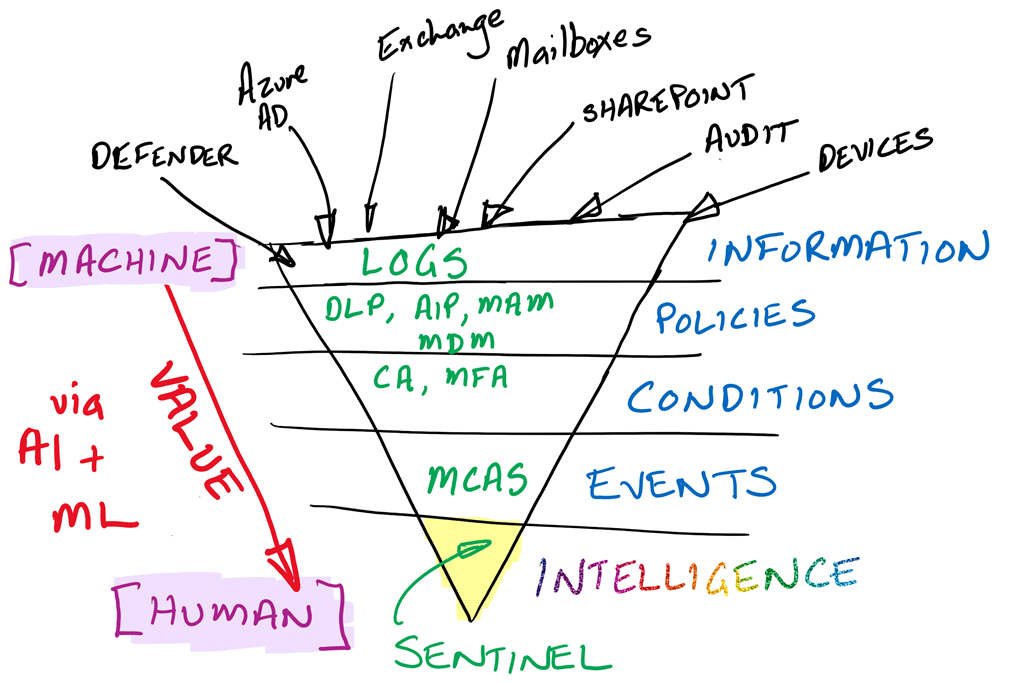 Exchange
Mailboxes
Azure
AD
SHAREPOINT
DEFENDER
AUDIT
DEVICES
[MACHINE]
LOGS
INFORMATION
DLP, AIP, MAM
MDM
POLICIES
CA, MFA
CONDITIONS
via
AI +
ML
VALUE
MCAS
EVENTS
INTELLIGENCE
[HUMAN]
SENTINEL